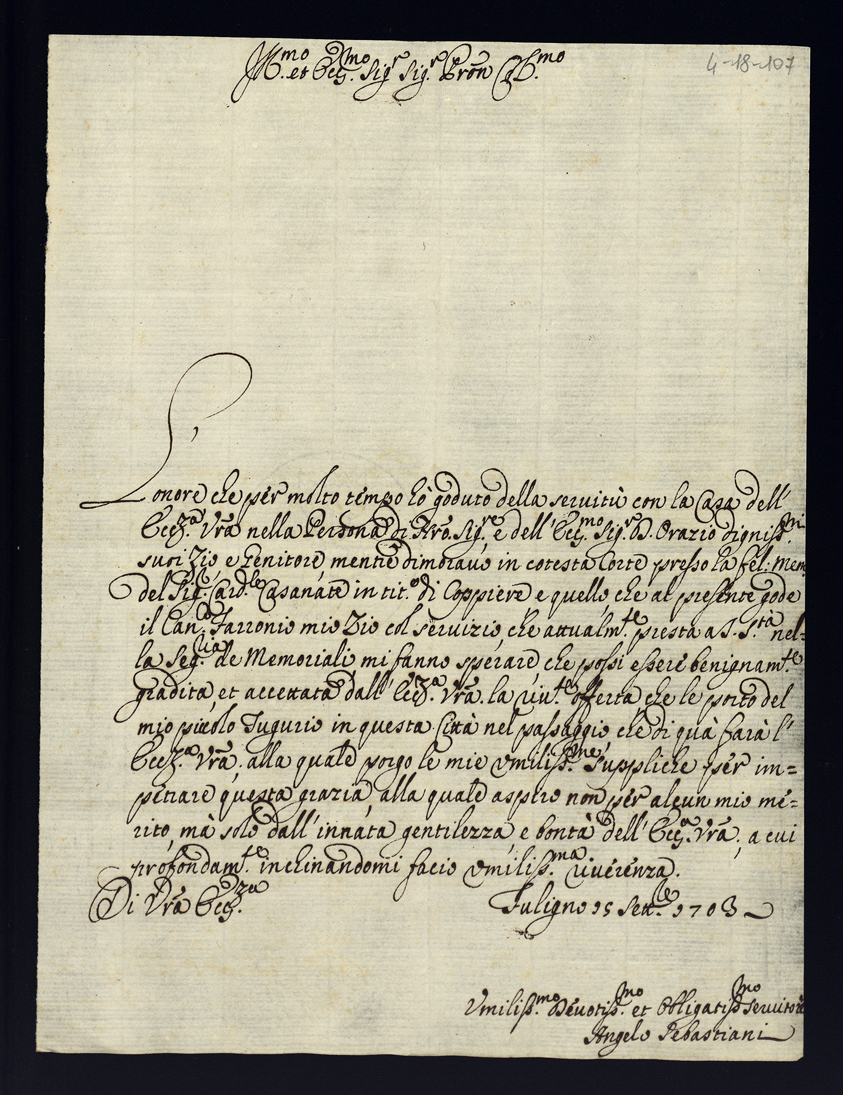 Ill.mo et Ecc.mo Sig.r Sig.r Pron Col.mo
4-18-107
L'onore che per molto tempo hò goduto della servitù con la Casa dell'
Ecc.za Vra nella Persona di Sig.re e dell' Ecc.mo Sig.r D. Orazio digniss.mi
suoi Zio, e Genitore, mentre dimoravo in cotesta Corte presso la fel: mem
del Sig. Card.le Casanate in tit.o di Coppiere, e quello che al presente gode
il Can.co Farronio mio Zio col servizio, che attualm.te presta a S. S.tà nel-
la Seg.ria de Memoriali mi fanno sperare che possi essere benignam.te
gradita, et accettata dall' Ecc.za Vra. la offerta che le porto del
mio piccolo Tugurio in questa Città nel passaggio che di quà farà l'
Ecc.za Vra. alla quale porgo le mie umiliss.me suppliche per im=
petrare questa grazia, alla quale aspiro non per alcun mio me=
rito, mà solo dall'innata gentilezza, e bontà dell' Ecc.za Vra. a cui
profondam.te inchinandomi facio umiliss.ma riverenza.
Di Vra Ecc.za
Fuligno 15 Sett.bre 1703
Umiliss.mo Devotiss.mo et Obligatiss.mo Servitore
Angelo Sebastiani